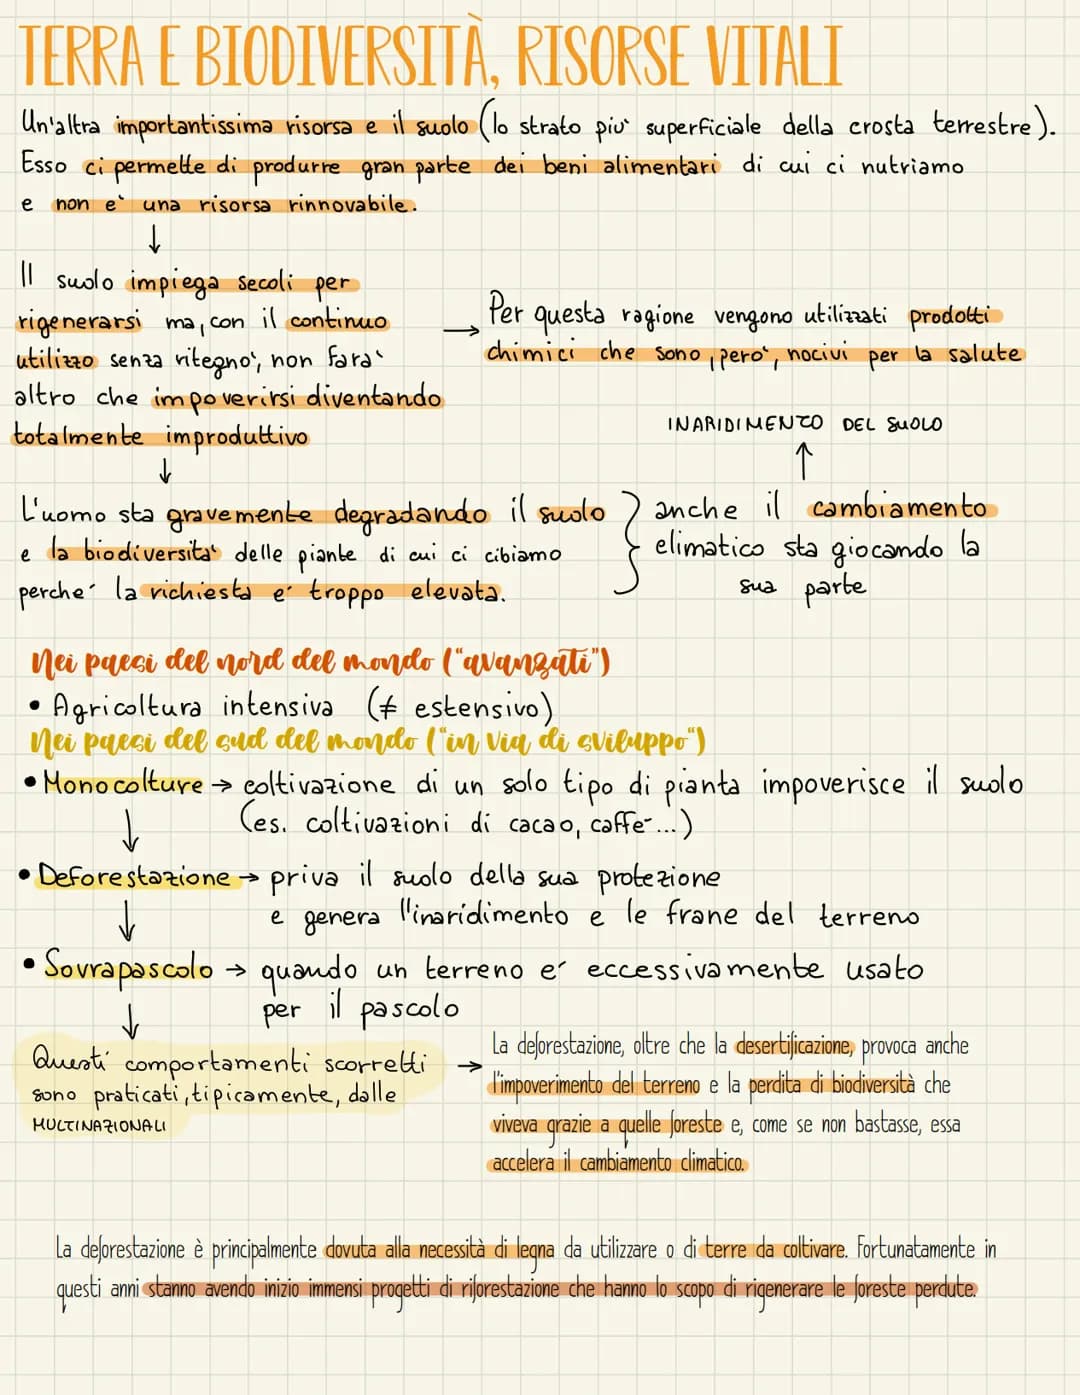 TERRA E BIODIVERSITÀ, RISORSE VITALI
Un'altra importantissima risorsa e il suolo (lo strato piu' superficiale della crosta terrestre).
Esso ci permette di produrre gran parte dei beni alimentari di cui ci nutriamo
e non e' una risorsa rinnovabile.
↓
Il suolo impiega secoli per
rigenerarsi ma, con il continuo
utilizzo senza ritegno', non fara'
altro che impoverirsi diventando
totalmente improduttivo
→ Per questa ragione vengono utilizzati prodotti
chimici che sono, pero', nocivi per la salute
↓
L'uomo sta gravemente degradando il suolo
e la biodiversita' delle piante di cui ci cibiamo
perche' la richiesta e' troppo elevata.
INARIDIMENTO DEL SUOLO
↑
anche il cambiamento
climatico sta giocando la
sua parte
Nei paesi del nord del mondo ("avanzati")
• Agricoltura intensiva (≠ estensivo)
Nei paesi del sud del mondo ("in via di sviluppo")
• Monocolture → coltivazione di un solo tipo di pianta impoverisce il suolo
(es. coltivazioni di cacao, caffe'...)
↓
• Deforestazione → priva il suolo della sua protezione
e genera l'inaridimento e le frane del terreno
↓
• Sovrapascolo → quando un terreno e' eccessivamente usato
per il pascolo
↓
Questi comportamenti scorretti
sono praticati, tipicamente, dalle
MULTINAZIONALI
→ La deforestazione, oltre che la desertificazione, provoca anche
l'impoverimento del terreno e la perdita di biodiversità che
viveva grazie a quelle foreste e, come se non bastasse, essa
accelera il cambiamento climatico.
La deforestazione è principalmente dovuta alla necessità di legna da utilizzare o di terre da coltivare. Fortunatamente in
questi anni stanno avendo inizio immensi progetti di riforestazione che hanno lo scopo di rigenerare le foreste perdute.